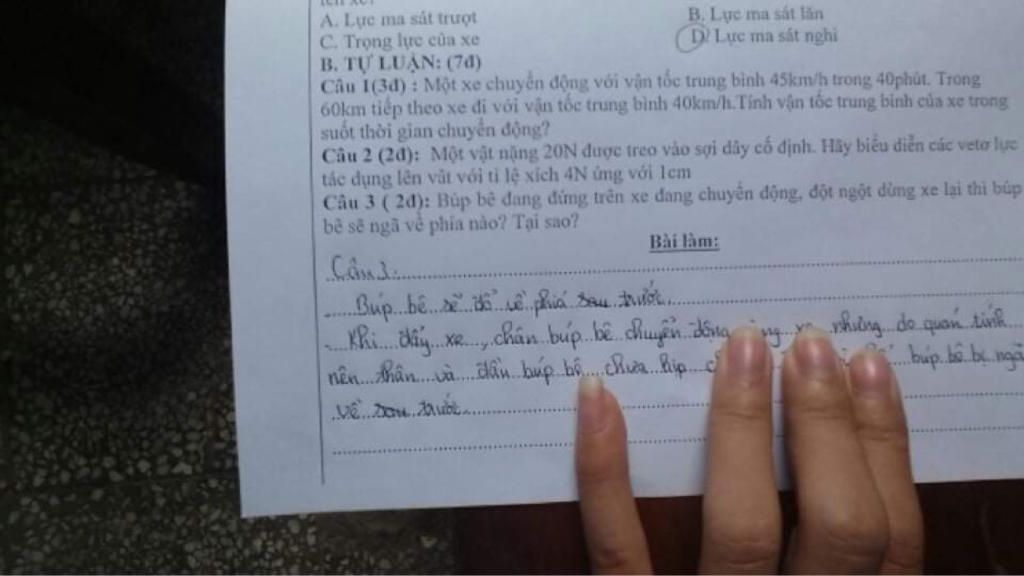 A. Lực ma sát trượt B. Lực ma sát lăn
C. Trọng lực của xe D/ Lực ma sát nghỉ
B. TỰ LUẬN: (7đ)
Câu 1(3đ) : Một xe chuyển động với vận tốc trung bình 45km/h trong 40phút. Trong
60km tiếp theo xe đi với vận tốc trung bình 40km/h.Tính vận tốc trung bình của xe trong
suốt thời gian chuyển động?
Câu 2 (2đ): Một vật nặng 20N được treo vào sợi dây cố định. Hãy biểu diễn các vetơ lực
tác dụng lên vật với tỉ lệ xích 4N ứng với 1cm
Câu 3 ( 2đ): Búp bê đang đứng trên xe đang chuyển động, đột ngột dừng xe lại thì búp
bê sẽ ngã về phía nào? Tại sao?
Bài làm:
Câu 3:
Búp bê sẽ đổ về phía sau trước.
Khi đẩy xe, chân búp bê chuyển động xe nhưng do quán tính
nên thân và đầu búp bê chưa kịp búp bê bị ngã
về sau trước.